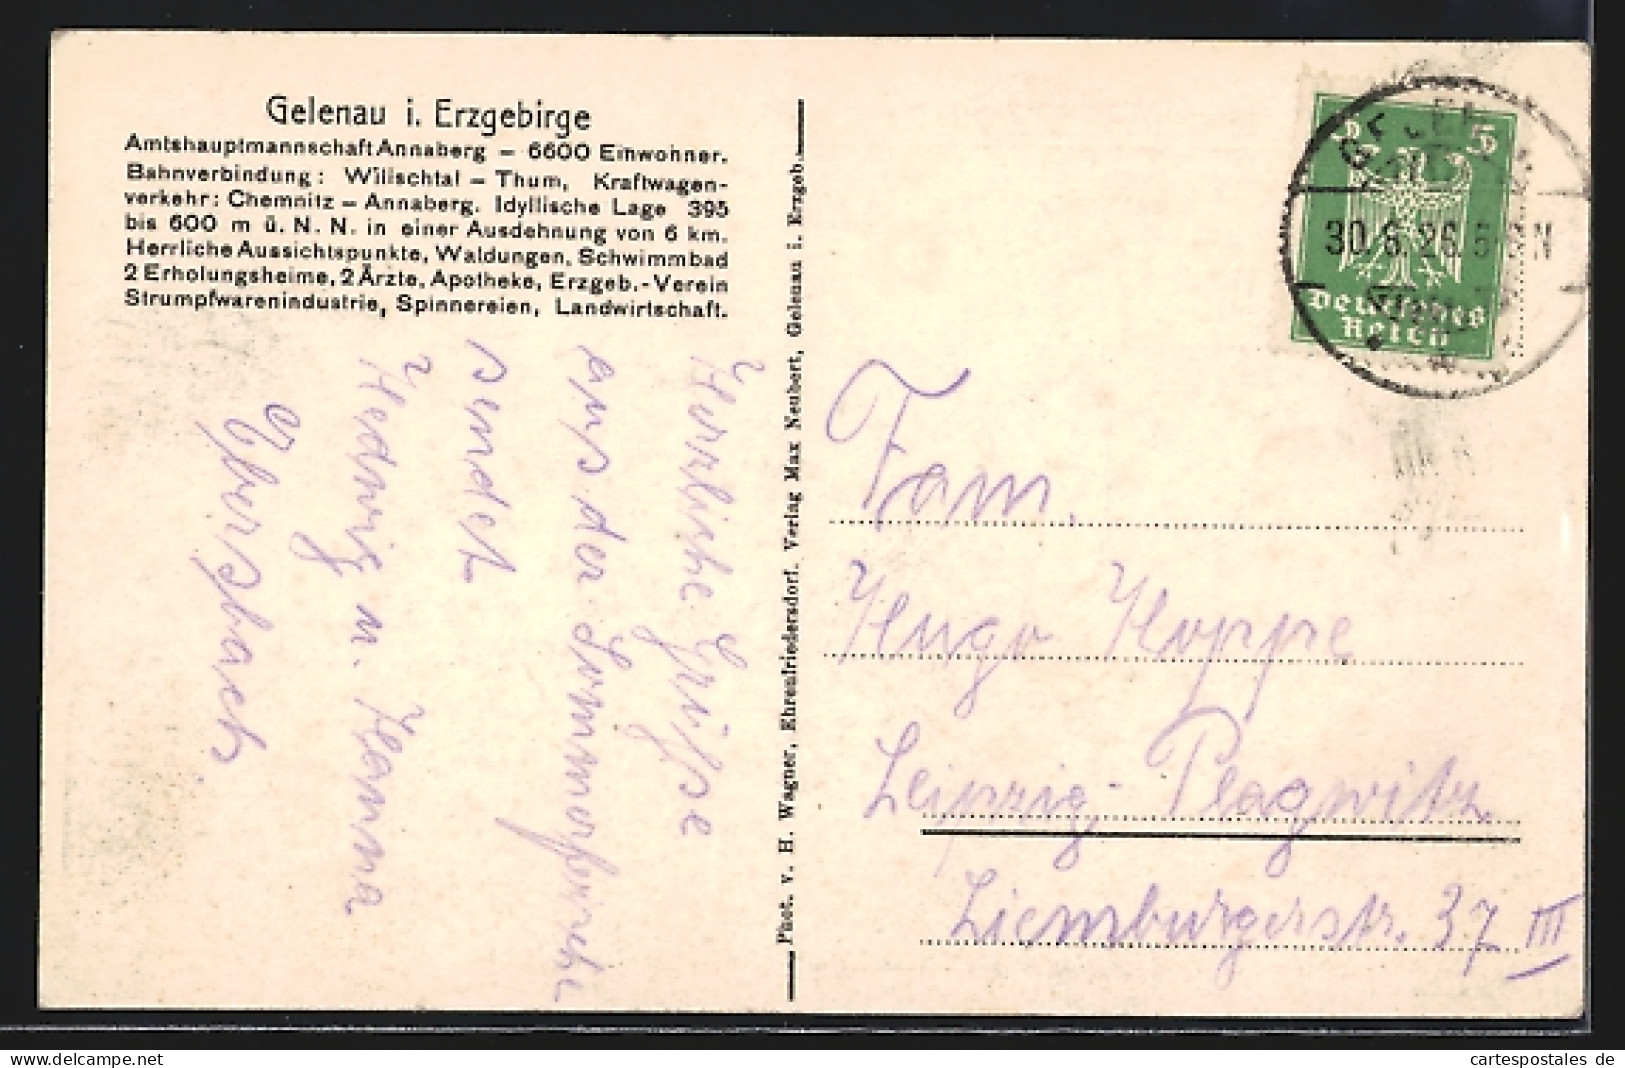 Gelenau i. Erzgebirge
Amtshauptmannschaft Annaberg – 6600 Einwohner.
Bahnverbindung: Wilischtal – Thum, Kraftwagen-
verkehr: Chemnitz – Annaberg. Idyllische Lage 395
bis 600 m ü. N. N. in einer Ausdehnung von 6 km.
Herrliche Aussichtspunkte, Waldungen, Schwimmbad
2 Erholungsheime, 2 Ärzte, Apotheke, Erzgeb.-Verein
Strumpfwarenindustrie, Spinnereien, Landwirtschaft.
Herzliche Grüße
aus der Sommerfrische
sendet
Hedwig u. Hanna
Phot. v. H. Wagner, Ehrenfriedersdorf. Verlag Max Neubert, Gelenau i. Erzgeb.
5
Deutsches
Reich
30.6.26.
Fam.
Hugo Hoppe
Leipzig-Plagwitz.
Ziemburgerstr. 37 III
cartespostales de